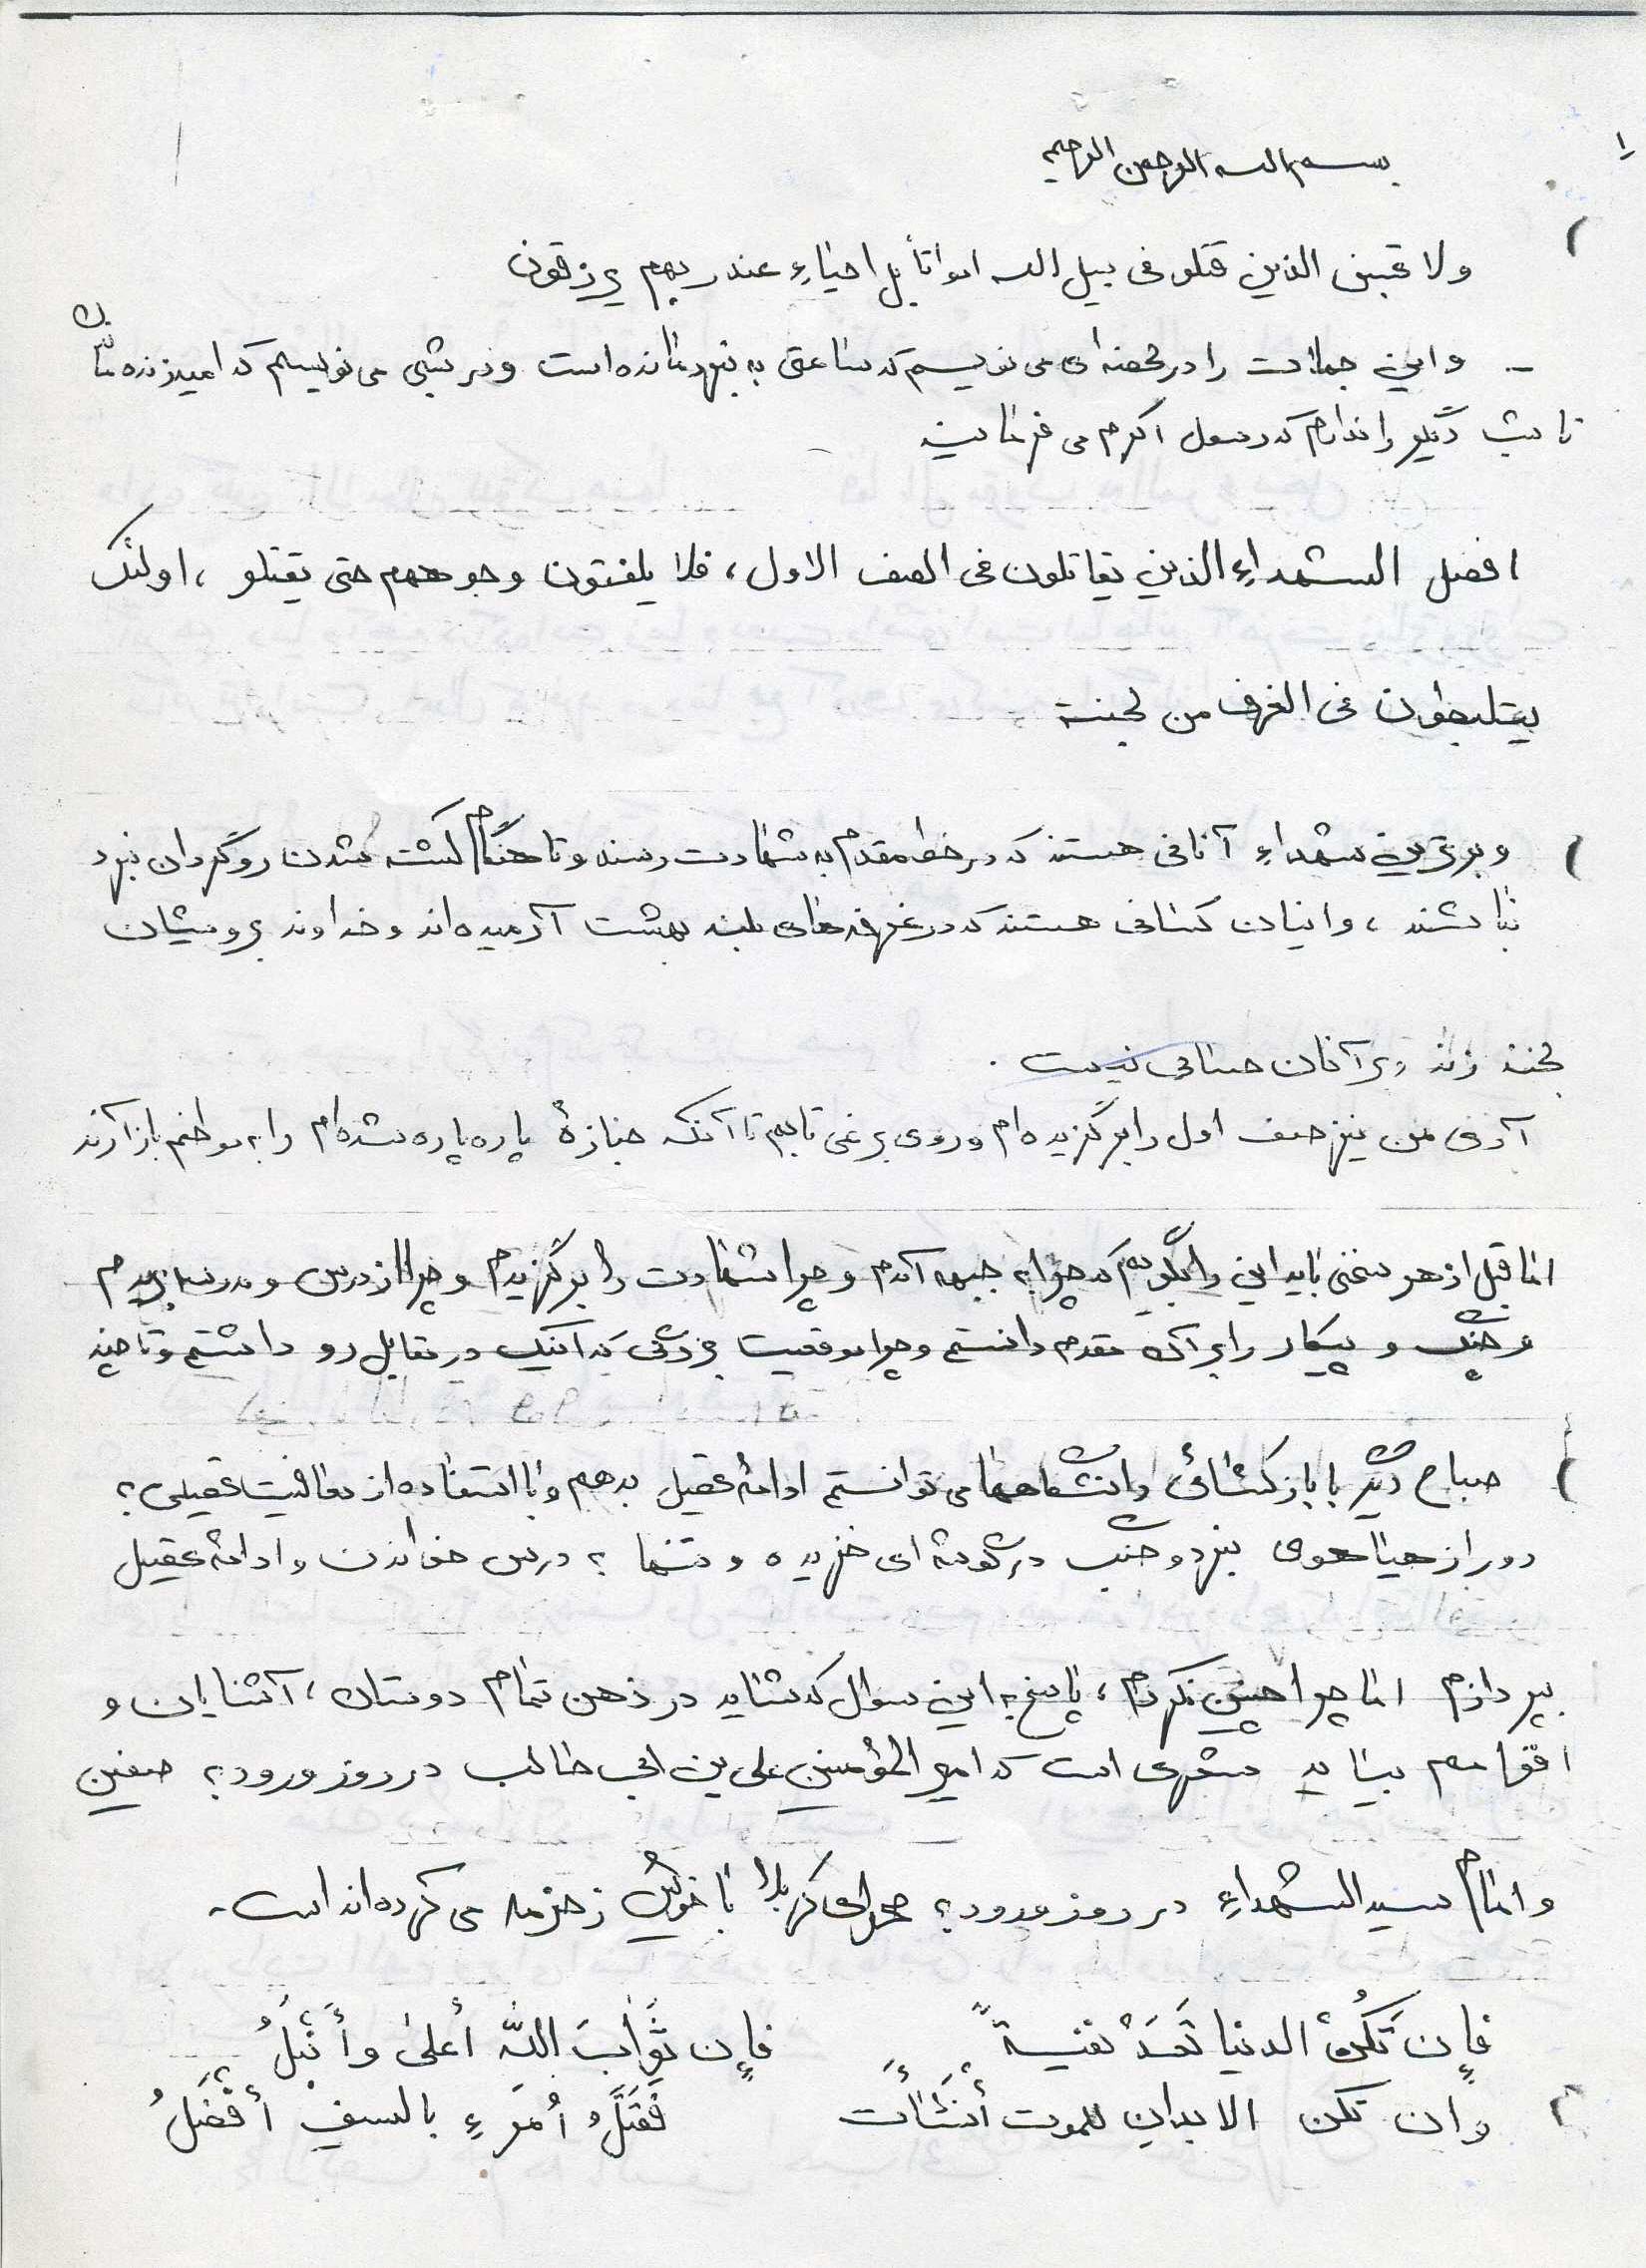 ۱
بسم الله الرحمن الرحیم
ولا تحسبن الذین قتلو فی سبیل الله امواتاً بل احیاءِ عند ربهم یرزقون
– و این جملات را در لحظه‌ای می نویسم که ساعتی به نبرد نمانده است و در شبی می نویسم که امید زنده ماندن
تا شب دیگر را ندارم که رسول اکرم می فرماید
افضل الشهداءِ الذین یقاتلون فی الصف الاول، فلا یلفتون وجوههم حتی یقتلو، اولئک
یتلبطون فی الغرف من لجنة
و برترین شهداءِ آنانی هستند که در خط مقدم به شهادت رسند و تا هنگام کشته شدن روگردان نبرد
نباشند، و اینان کسانی هستند که در غرفه‌های بلند بهشت آرمیده‌اند و خداوند برویشان
لبخند زند و بر آنان حسابی نیست.
آری من نیز صف اول را برگزیده‌ام و روی بر نمی تابم تا آنکه جنازهٔ پاره پاره شده‌ام را به موطنم باز آرند
اما قبل از هر سخنی باید این را بگویم که چرا به جبهه آمدم و چرا شهادت را برگزیدم و چرا از درس و مدرسه بریدم
و جنگ و پیکار را بر آن مقدم دانستم و چرا موقعیت بزرگی که اینک در مقابل رو داشتم و تا چند
صباح دیگر با بازگشائی دانشگاهها می توانستم ادامهٔ تحصیل بدهم و با استفاده از معافیت تحصیلی؟
دور از هیاهوی نبرد و جنگ در گوشه‌ای خزیده و تنها به درس خواندن و ادامهٔ تحصیل
بپردازم اما چرا چنین نکردم، پاسخ به این سوال که شاید در ذهن تمام دوستان، آشنایان و
اقوامم بیاید شعری است که امیر المؤمنین علی بن ابی طالب در روز ورود به صفین
و امام سید الشهداءِ در روز ورود به صحرای کربلا با خویش زمزمه می کرده‌اند است.
فإن تَکُنْ الدنیا تُعَدْ نفیسةً فإن ثَوابَ اللّه أعلیٰ وأَنْبَلُ
وإن تکن الابدان للموت أُنشَأَت فَقَتلُ أُمرَءِ بالسیفِ أَفْضَلُ